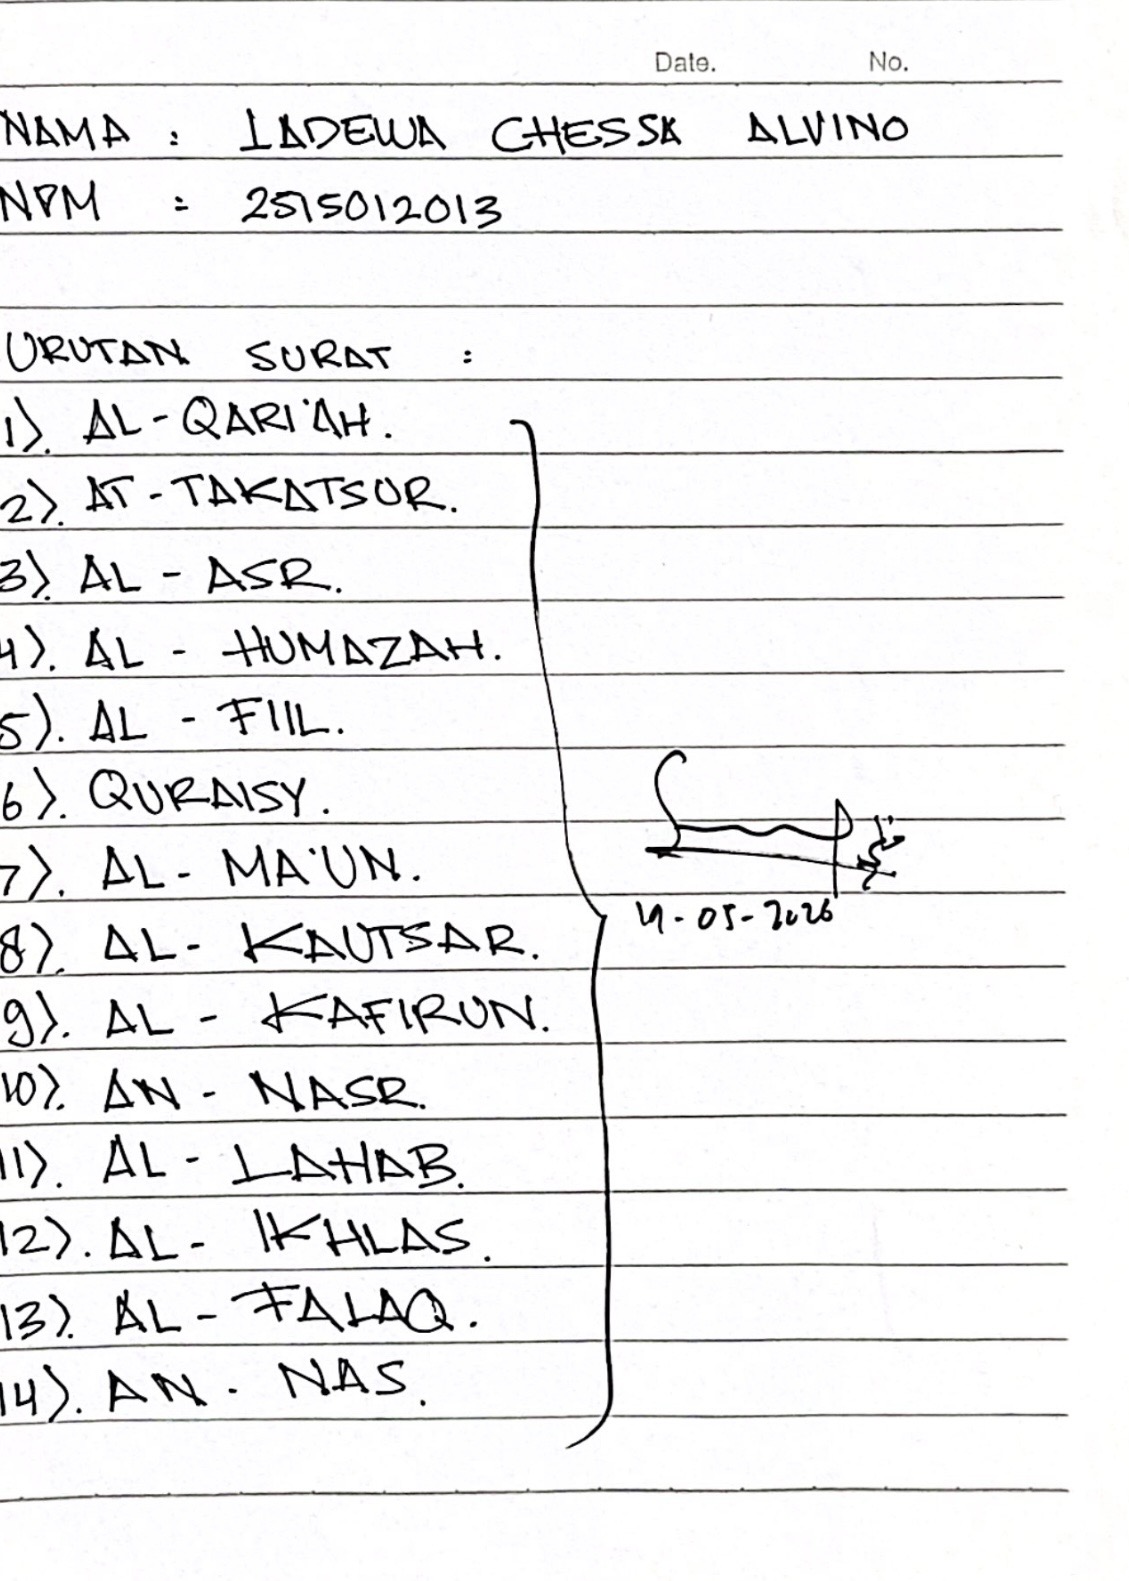 Date. No.
NAMA : LADEWA CHESSA ALVINO
NPM : 2515012013
URUTAN SURAT :
1). AL-QARI'AH.
2). AT-TAKATSUR.
3). AL - ASR.
4). AL - HUMAZAH.
5). AL - FIIL.
6). QURAISY.
7). AL- MA'UN.
8). AL- KAUTSAR.
9). AL - KAFIRUN.
10). AN - NASR.
11). AL - LAHAB.
12). AL- IKHLAS.
13). AL - FALAQ.
14). AN - NAS.
05-2026